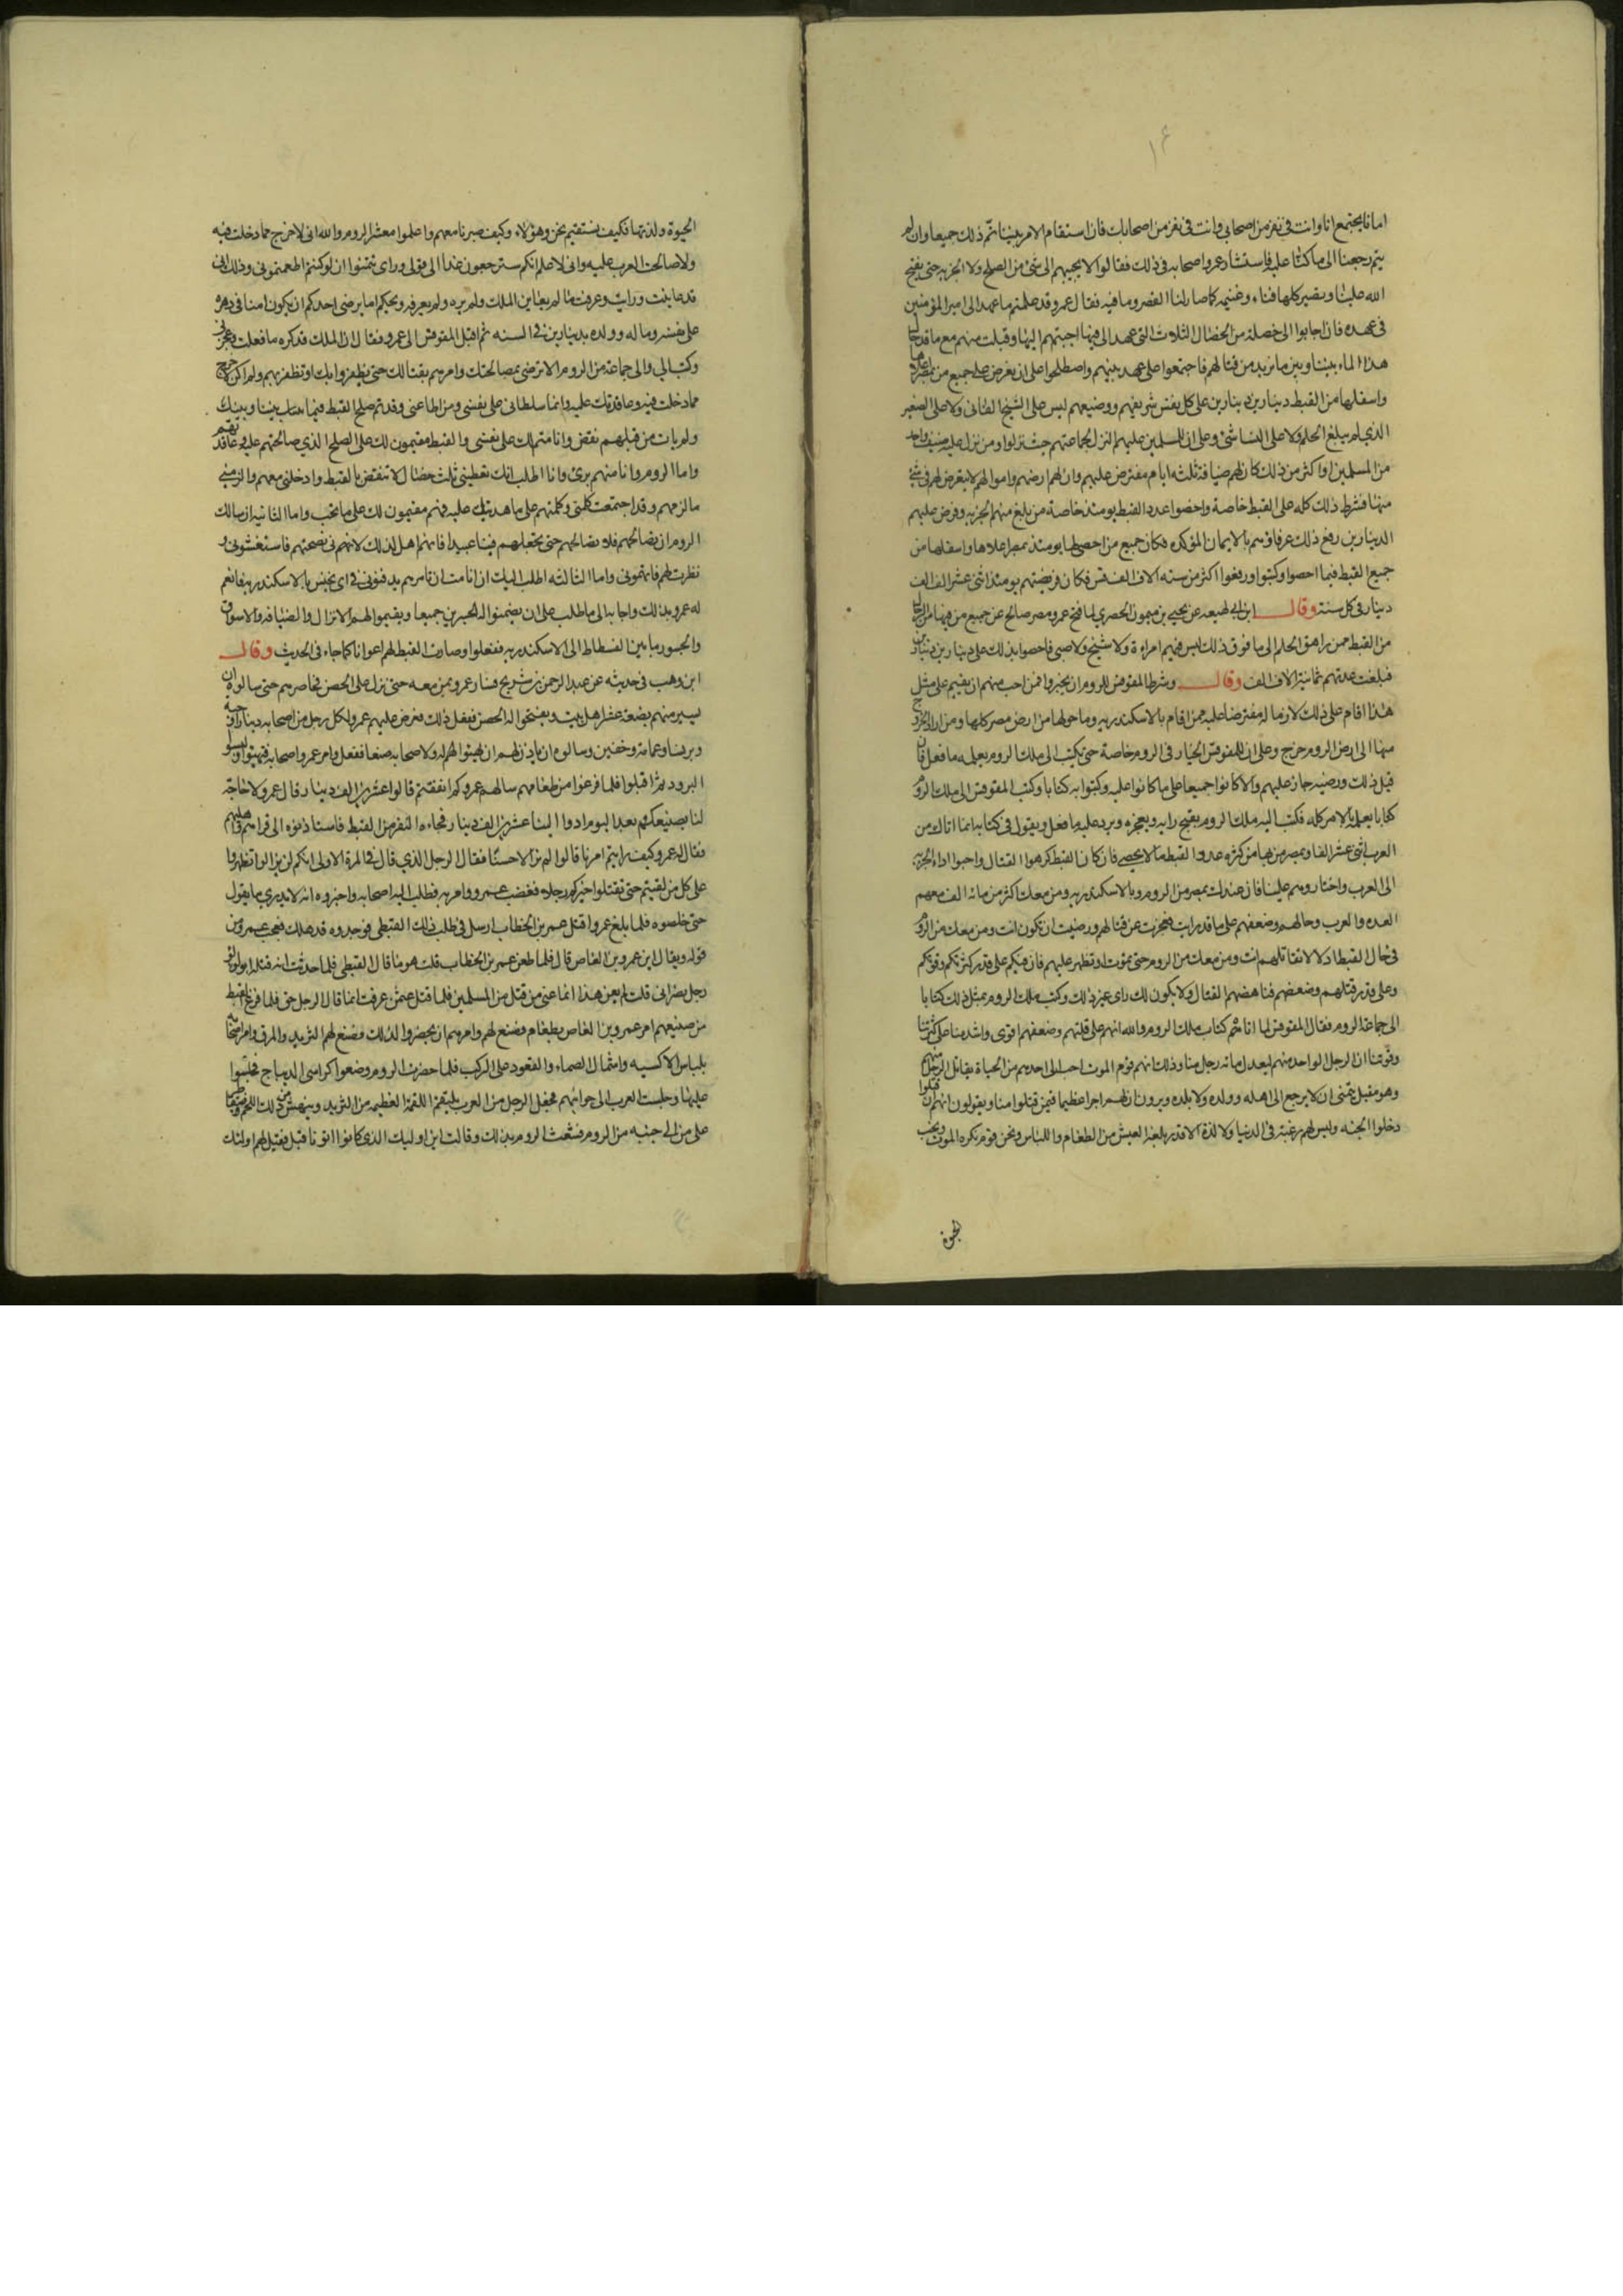 ١٤
امانا يجتمع انا وانت في نفر من اصحابي وانت في نفر من اصحابك فان استقام الامر بيننا تم ذلك جميعا وان لم
يتم رجعنا الى ما كنا عليه فاستشار عمرو اصحابه في ذلك فقالوا لا يجيبهم الى شئ من الصلح ولا الجزيه حتى يفتح
الله علينا وتصير كلها فناء وغنيمه كما صار لنا القصر وما فيه فقال عمرو قد علمتم ما عهد الى امير المؤمنين
في عهده فان اجابوا الى خصلة من الخصال الثلاث التي عهد الى فيها اجبتهم اليها وقبلت منهم مع ما قد حال
هذا الماء بيننا وبين ما نريد من قتالهم فاجتمعوا على عهد بينهم واصطلحوا على ان يفرض على جميع من بمصر اعلاها
واسفلها من القبط دينارين دينارين على كل نفس شريفهم ووضيعهم ليس على الشيخ الفانى ولا على الصغير
الذي لم يبلغ الحلم ولا على النسا شئ وعلى ان للمسلمين عليهم النزل لجماعتهم حيث نزلوا ومن نزل عليه ضيف واحد
من المسلمين او اكثر من ذلك كان لهم ضيافة ثلثه ايام مفترض عليهم وان لهم ارضهم واموالهم لا يعرض لهم في شئ
منها فشرط ذلك كله على القبط خاصة واحصوا عدد القبط يومئذ خاصة من بلغ منهم الجزيه وفرض عليهم
الدينارين رفع ذلك عرفاؤهم بالايمان المؤكده فكان جميع من احصى بها يومئذ بمصر اعلاها واسفلها من
جميع القبط فيما احصوا وكتبوا ورفعوا اكثر من سته الاف الف نفس فكان فريضتهم يومئذ اثنى عشر الف الف
دينار في كل سنة وقال ابن ابي لهيعه عن يحيى بن ميمون الحضري لما فتح عمرو مصر صالح عن جميع من فيها من الرجال
من القبط ممن راهق الحلم الى ما فوق ذلك ليس فيهم امراءة ولا شيخ ولا صبى فاحصوا بذلك على دينارين دينارين
فبلغت عدتهم ثمانية الاف الف وقال وشرط المقوقس للروم ان يخيروا فمن احب منهم ان يقيم على مثل
هذا اقام على ذلك لازما له مفترضا عليه ممن اقام بالاسكندريه وما حولها من ارض مصر كلها ومن اراد الخروج
منها الى ارض الروم خرج وعلى ان للمقوقس الخيار في الروم خاصة حتى يكتب الى ملك الروم يعلمه ما فعل فان
قبل ذلك ورضيه جاز عليهم والا كانوا جميعا على ما كانوا عليه وكتبوا به كتابا وكتب المقوقس الى ملك الروم
كتابا يعلمه بالامر كله فكتب اليه ملك الروم يقبح رايه ويعجزه ويرد عليه ما فعل ويقول في كتابه انما اتاك من
العرب اثنى عشر الفا وبمصر من بها من كثرة عدد القبط ما لا يحصى فان كان القبط كرهوا القتال واحبوا اداء الجزيه
الى العرب واختاروهم علينا فان عندك بمصر من الروم وبالاسكندريه ومن معك اكثر من مائه الف معهم
العده والعرب وحالهم وضعفهم على ما قد رايت فعجزت عن قتالهم ورضيت ان تكون انت ومن معك من الروم
في حال القبط اذلا لا تقاتلهم انت ومن معك من الروم حتى تموت او تظهر عليهم فانهم فيكم على قدر كثرتكم وقوتكم
وعلى قدر قلتهم وضعفهم فناهضهم القتال ولا يكون لك راى غير ذلك وكتب ملك الروم بمثل ذلك كتابا
الى جماعة الروم فقال المقوقس لما اتاهم كتاب ملك الروم والله انهم على قلتهم وضعفهم اقوى واشد منا على كثرتنا
وقوتنا ان الرجل الواحد منهم ليعدل مائه رجل منا وذلك انهم قوم الموت احب الى احدهم من الحياة يقاتل الرجل منهم
وهو مقبل يتمنى ان لا يرجع الى اهله وولده ولا بلده ويرون ان لهم اجرا عظيما فيمن قتلوا منا ويقولون انهم ان قتلوا
دخلوا الجنه وليس لهم رغبة في الدنيا ولا لذة الا قدر بلغة العيش من الطعام واللباس ونحن قوم نكره الموت ونحب
الحيوة
الحيوة ولذتها فكيف نستقيم نحن وهؤلاء وكيف صبرنا معهم واعلموا معشر الروم والله انى لاخرج مما دخلت فيه
ولا صالحت العرب عليه وانى لاعلم انكم سترجعون غدا الى قولى وراى وتتمنوا ان لو كنتم اطعتمونى وذلك انى
قد عاينت ورايت وعرفت ما لم يعاين الملك ولم يره ولم يعرفه ويحكم اما يرضى احدكم ان يكون امنا في دهره
على نفسه وماله وولده بدينارين في السنه ثم اقبل المقوقس الى عمرو فقال ان الملك قد كره ما فعلت وعجزنى
وكتب الي والى جماعة من الروم الا نرضى بمصالحتك وامرهم بقتالك حتى يظفروا بك او تظفر بهم ولم اكن لاخرج
مما دخلت فيه وعاقدتك عليه وانما سلطانى على نفسى ومن اطاعنى وقد تم صلح القبط فيما بينك بيننا وبينك
ولم يات من قبلهم نقض وانا متم لك على نفسى والقبط مقيمون لك على الصلح الذي صالحتهم عليه وعاقدتهم
واما الروم وانا منهم برئ وانا اطلب اليك تعطينى ثلث خصال لا تنقض بالقبط وادخلنى معهم والزمنى
ما لزمهم وقد اجتمعت كلمتى وكلمتهم على ما عاهدتك عليه فهم مقيمون لك على ما تحب واما الثانيه ان سالك
الروم ان تصالحهم فلا تصالحهم حتى تجعلهم فينا عبيدا فانهم اهل لذلك لانهم نى نصحتهم فاستغشونى و
نظرت لهم فاتهمونى واما الثالثه اطلب اليك ان انا مت ان تامرهم يدفنونى في ابى يحنس بالاسكندريه فانعم
له عمرو بذلك واجابه الى ما طلب على ان يضمنوا له الجسرين جميعا ويقيموا لهم الانزال والضيافه والاسواق
والجسور ما بين الفسطاط الى الاسكندريه ففعلوا وصارت القبط لهم اعوانا كما جاء في الحديث وقال
ابن وهب في حديثه عن عبد الرحمن بن شريح فسار عمرو بمن معه حتى نزل على الحصن فحاصرهم حتى سالوه ان
يسير منهم بضعة عشر اهل بيت ويفتحوا له الحصن ففعل ذلك ففرض عليهم عمرو لكل رجل من اصحابه دينارا وجبة
وبرنسا وعمامة وخفين وسالوه ان ياذن لهم ان يهيئوا لهم له ولاصحابه صنعا ففعل وامر عمرو اصحابه فتهيئوا ولبسو
البرود ثم اقبلوا فلما فرغوا من طعامهم سالهم عمرو كم انفقتم قالوا عشرين الف دينار قال عمرو لا حاجة
لنا بصنيعكم بعد اليوم ادوا الينا عشرين الف دينار فجاءه النفر من القبط فاستاذنوه الى قراهم واهليهم
فقال له عمرو كيف رايتم امرنا قالوا لم نر الا حسنا فقال الرجل الذي قال في المرة الاولى انكم لن تزالوا تظهروا
على كل من لقيتم حتى تقتلوا خيركم رجلا فغضب عمرو وامر به فطلب اليه اصحابه واخبروه انه لا يدري ما يقول
حتى خلصوه فلما بلغ عمروا قتل عمر بن الخطاب ارسل في طلب ذلك القبطى فوجدوه قد هلك فعجب عمرو من
قوله ويقال ابن عمرو بن العاص قال فلما طعن عمر بن الخطاب قلت هو ما قال القبطى فلما حدثت انه قتله ابو لولو
رجل نصرانى قلت لم يعن هذا انما عنى من قتل من المسلمين فلما قتل عثمن عرفت انما قال الرجل حق فلما فرغ القبط
من صنيعهم امر عمرو بن العاص بطعام فصنع لهم وامرهم ان يحضروا لذلك فصنع لهم الثريد والمرق وامر اصحابه
بلباس الاكسيه واشتمال الصماء والقعود على الركب فلما حضرت الروم وضعوا كراسى الديباج فجلسوا
عليها وجلست العرب الى جوانبهم فجعل الرجل من العرب يلتقم اللقمة العظيمه من الثريد وينهش من ذلك اللحم
على من الى جنبه من الروم فبشعت الروم بذلك وقالت اين اوليك الذي كانوا اتونا قبل فقيل لهم اولئك